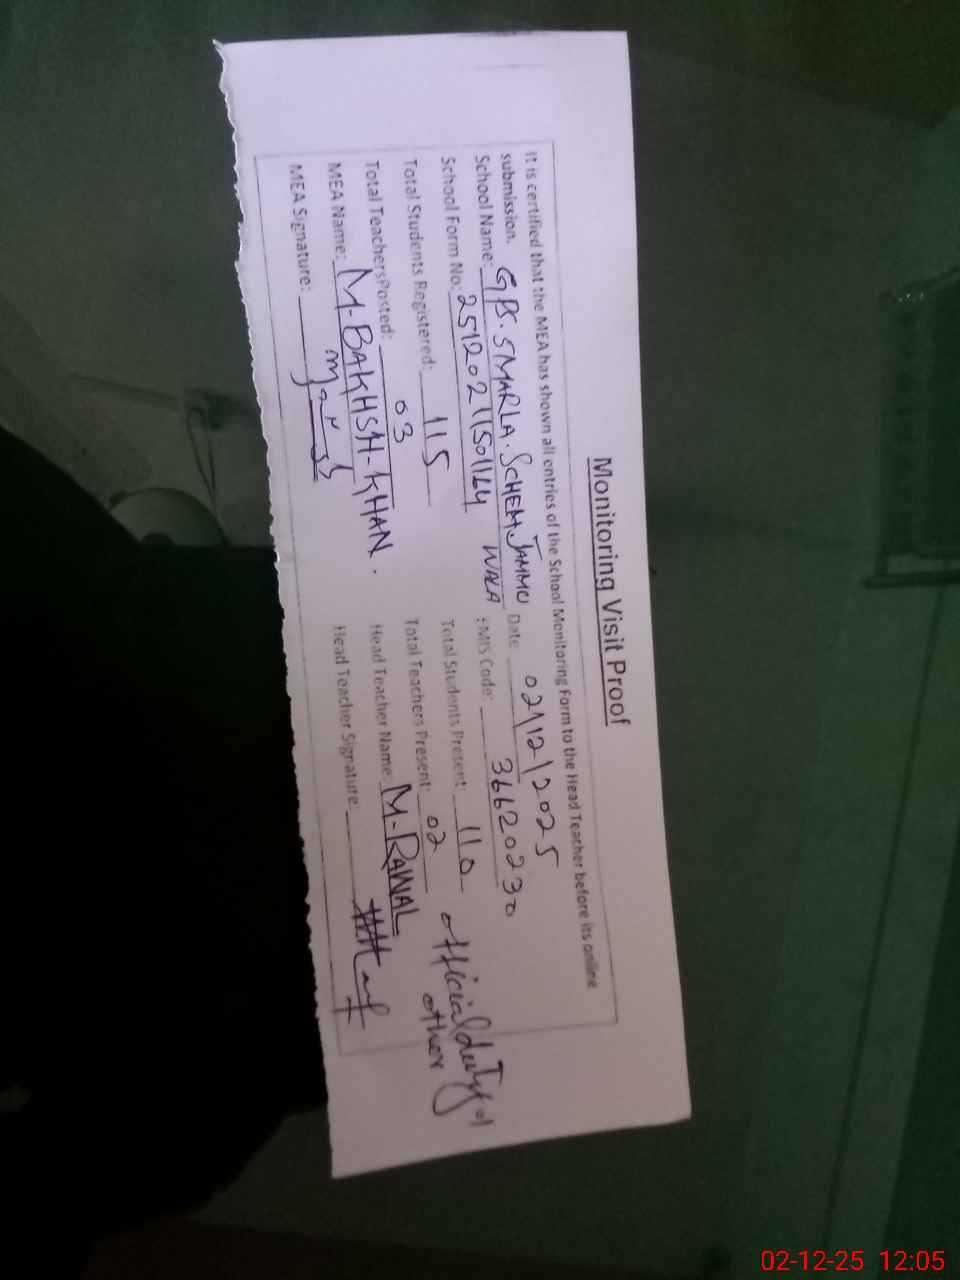 Monitoring Visit Proof
It is certified that the MEA has shown all entries of the School Monitoring Form to the Head Teacher before its online
submission.
Date: 02/12/2025
School Name: GPS. 5 MARLA. SCHEM JAMMU
WALA
EMIS Code: 36620230
School Form No: 25120211501164
Total Students Present: 110
Total Students Registered: 115
Total Teachers Present: 02 official duty 01
other
Total TeachersPosted: 03
Head Teacher Name: M-RAWAL
MEA Name: M-BAKHSH-KHAN.
Head Teacher Signature:
MEA Signature:
02-12-25 12:05